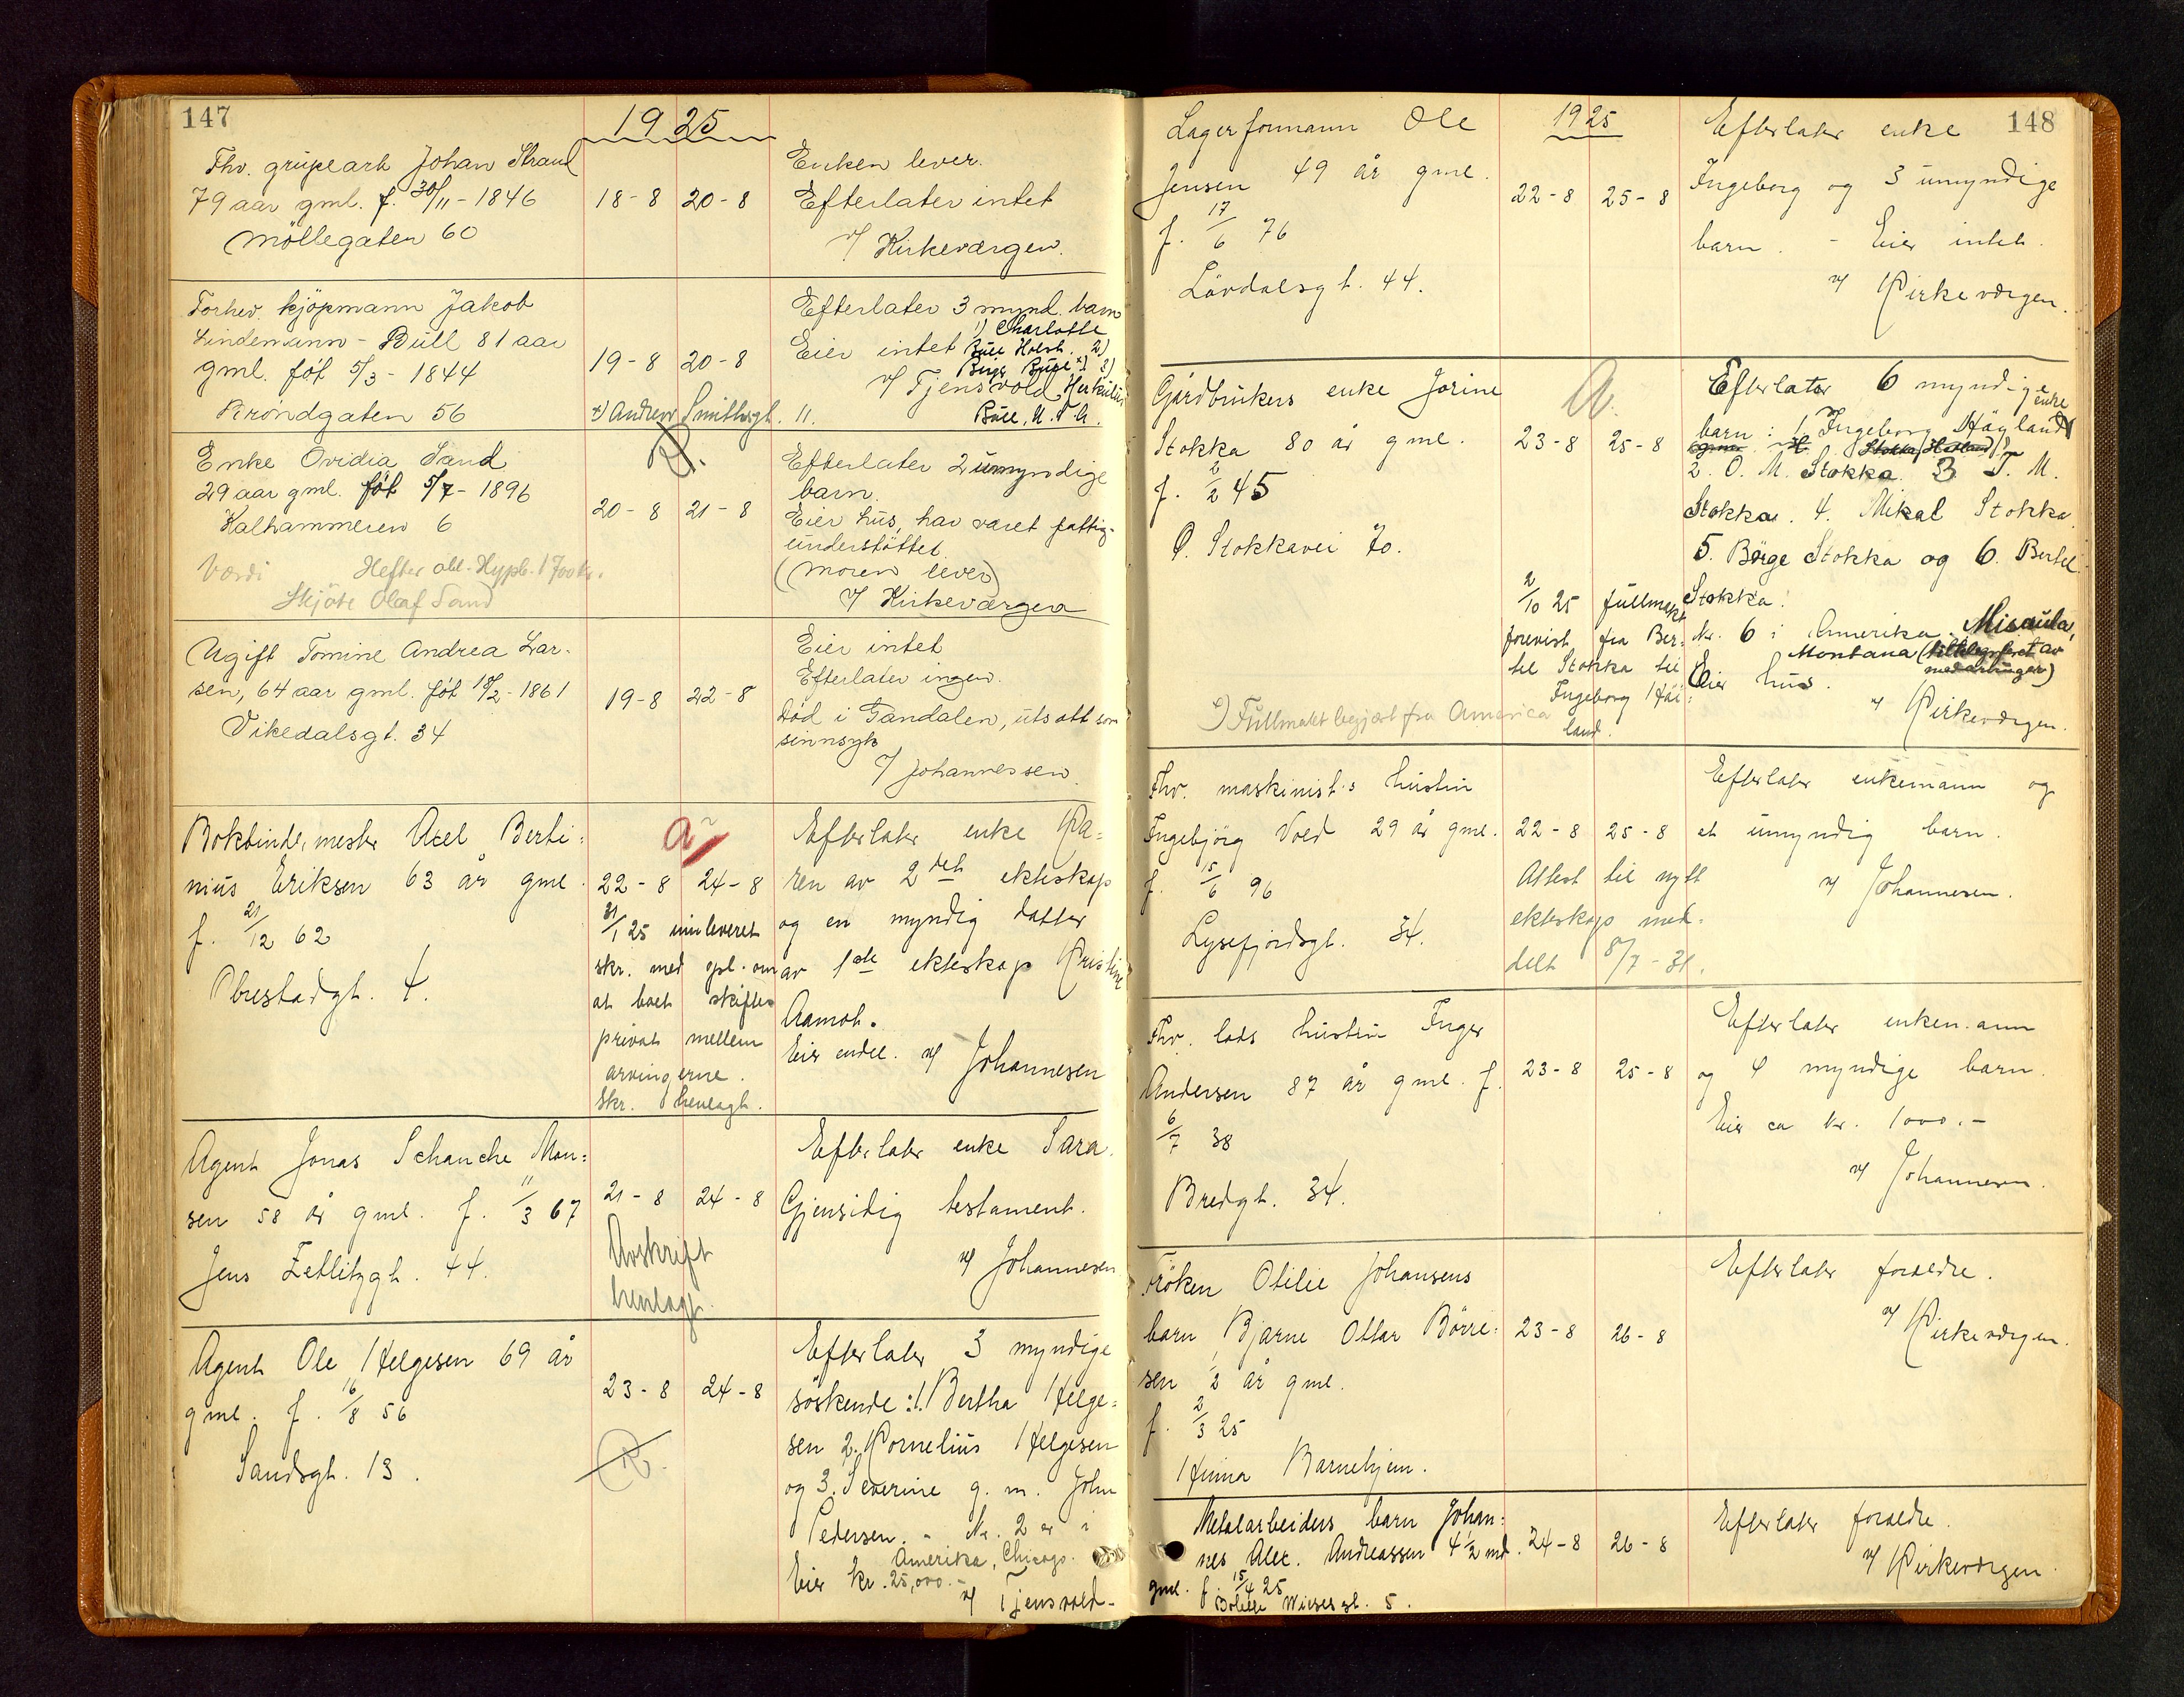 147
1925
Fhv. grupearb Johan Strand
79 aar gml. f. 30/11 - 1846
Möllegaten 60
18-8 20-8
Enken lever.
Efterlater intet
v/ Kirkevergen.
Forhv. kjöpmann Jakob
Lindemann - Bull 81 aar
gml. föt 5/3 - 1844
Bröndgaten 56
19-8 20-8
Efterlater 3 mynd. barn
1) Charlotte
Eier intet Bull Holst. 2)
Birger Bull x) 3)
v/ Tjensvold Herkulus
x) Andrew Smithsgt. 11. Bull, U.S.A.
Enke Ovidia Sand
29 aar gml. föt 5/7 - 1896
Kalhammeren 6
Værdi Hefter obl. Hypb. 1700 kr.
Skjöte Olaf Sand
R.
20-8 21-8
Efterlater 2 umyndige
barn.
Eier hus, har været fattig-
understöttet.
(Moren lever)
v/ Kirkevergen
Ugift Tomine Andrea Lar-
sen, 64 aar gml. föt 18/2 - 1861
Vikedalsgt. 34
19-8 22-8
Eier intet
Efterlater ingen.
Död i Gandalen, utsatt som
sinnsyk
v/ Johannessen.
Bokbindermester Axel Berti=
nius Eriksen 63 år gml.
f. 21/12 62
Obrestadgt. 4.
a
22-8 24-8
31/1 25 innleveret
skr. med opl. om
at boet skiftes
privat mellem
arvingerne.
Skr. henlagt.
Efterlater enke Ka=
ren av 2det ekteskap
og en myndig datter
av 1ste ekteskap Kristine
Aamot.
Eier endel. v/ Johannesen
Agent Jonas Schanche Mon=
sen 58 år gml. f. 11/3 67
Jens Zetlitzgt. 44.
21-8 24-8
Avskrift
henlagt.
Efterlater enke Sara.
Gjensidig testament.
v/ Johannesen
Agent Ole Helgesen 69 år
gml. f. 16/8 56
Sandsgt. 13.
23-8 24-8
R.
Efterlater 3 myndige
söskende: 1. Bertha Helge=
sen 2. Kornelius Helgesen
og 3. Severine g. m. John
Pedersen. - Nr. 2 er i
Amerika, Chicago.
Eier kr. 25,000.-
v/ Tjensvold-
148
1925
Lagerformann Ole
Jensen 49 år gml.
f. 17/6 76
Lövdalsgt. 44.
22-8 25-8
Efterlater enke
Ingeborg og 3 umyndige
barn. - Eier intet.
v/ Kirkevergen.
Gårdbrukers enke Jorine
Stokka 80 år gml.
f. 2/2 45
Ö. Stokkavei 70.
a.
23-8 25-8
2/10 25 fullmakt
forevist fra Ber=
til Stokka til
Ingeborg Höi=
land.
Fullmakt begjært fra America
Efterlater 6 myndige
enke
barn: 1. Ingeborg Högland
2. O. M. Stokka 3 T. M.
Stokka. 4. Mikal Stokka.
5. Börge Stokka og 6. Bertel
Stokka.
Nr. 6 i Amerika. Misaula,
Montana (tiltelegraferet av
medarvinger)
Eier hus.
v/ Kirkevergen.
Fhv. maskinist's hustru
Ingebjörg Vold 29 år gml.
f. 15/6 96
Lysefjordsgt. 34.
22-8 25-8
Attest til nytt
ekteskap med-
delt 8/7-31.
Efterlater enkemann og
et umyndig barn.
v/ Johannesen.
Fhv. lods hustru Inger
Andersen 87 år gml. f.
6/7 38
Bredgt. 34.
23-8 25-8
Efterlater enkemann
og 4 myndige barn.
Eier ca kr. 1000.-
v/ Johannesen.
Fröken Otilie Johansens
barn, Bjarne Ottar Börre=
sen 1/2 år gml.
f. 2/3 25
Hinna Barnehjem.
23-8 26-8
Efterlater foreldre.
v/ Kirkevergen.
Metalarbeiders barn Johan=
nes Alex. Andreassen 4 1/2 md.
gml. f. 15/4 25
Bolette Wiesesgt. 5.
24-8 26-8
Efterlater foreldre.
v/ Kirkevergen.